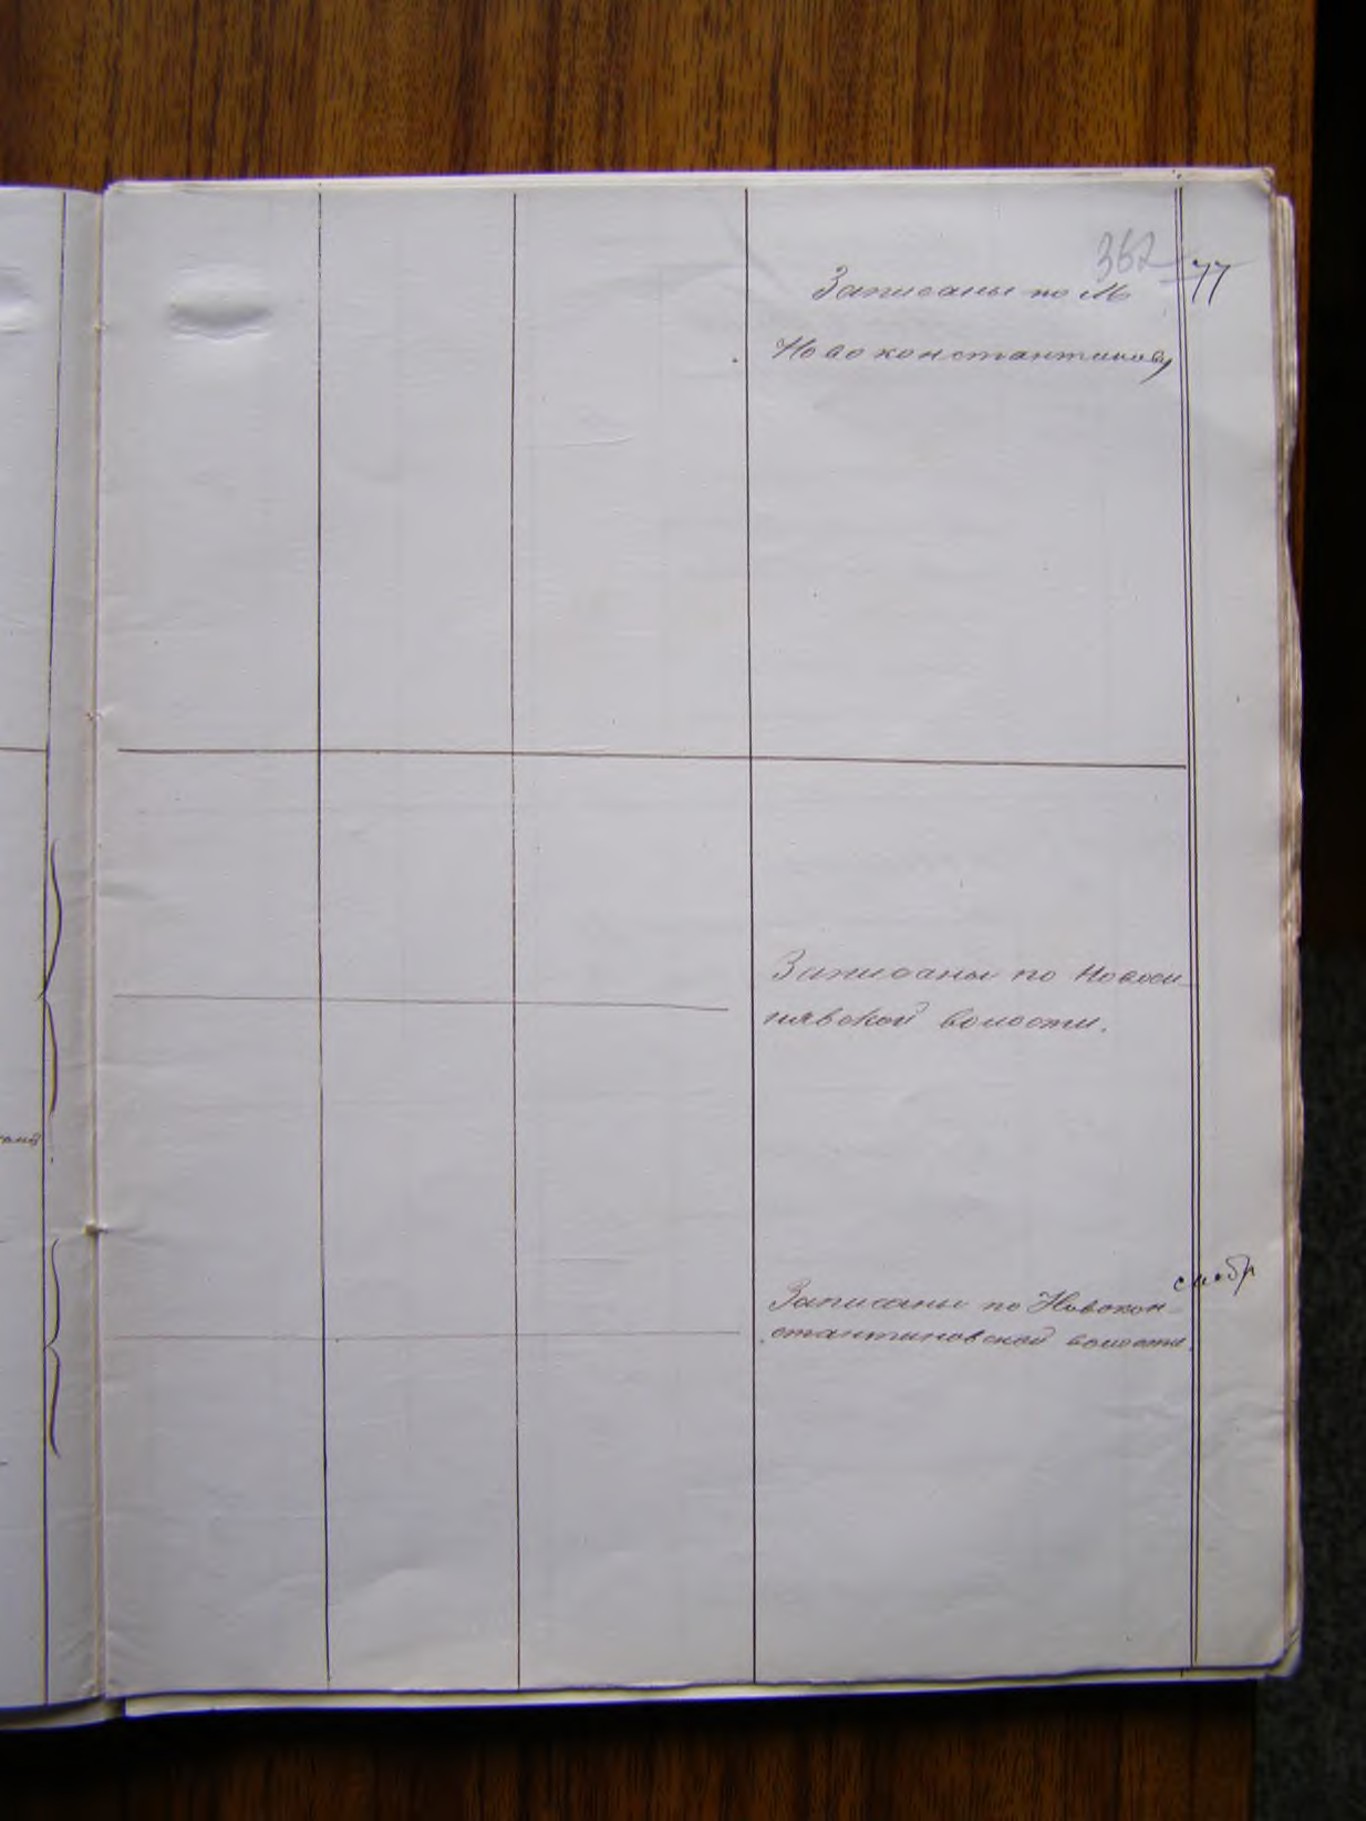 362 77
Записаны по М
Новоконстантинову
Записаны по Новоси-
нявской волости.
Записаны по Новокон-
стантиновской волости.